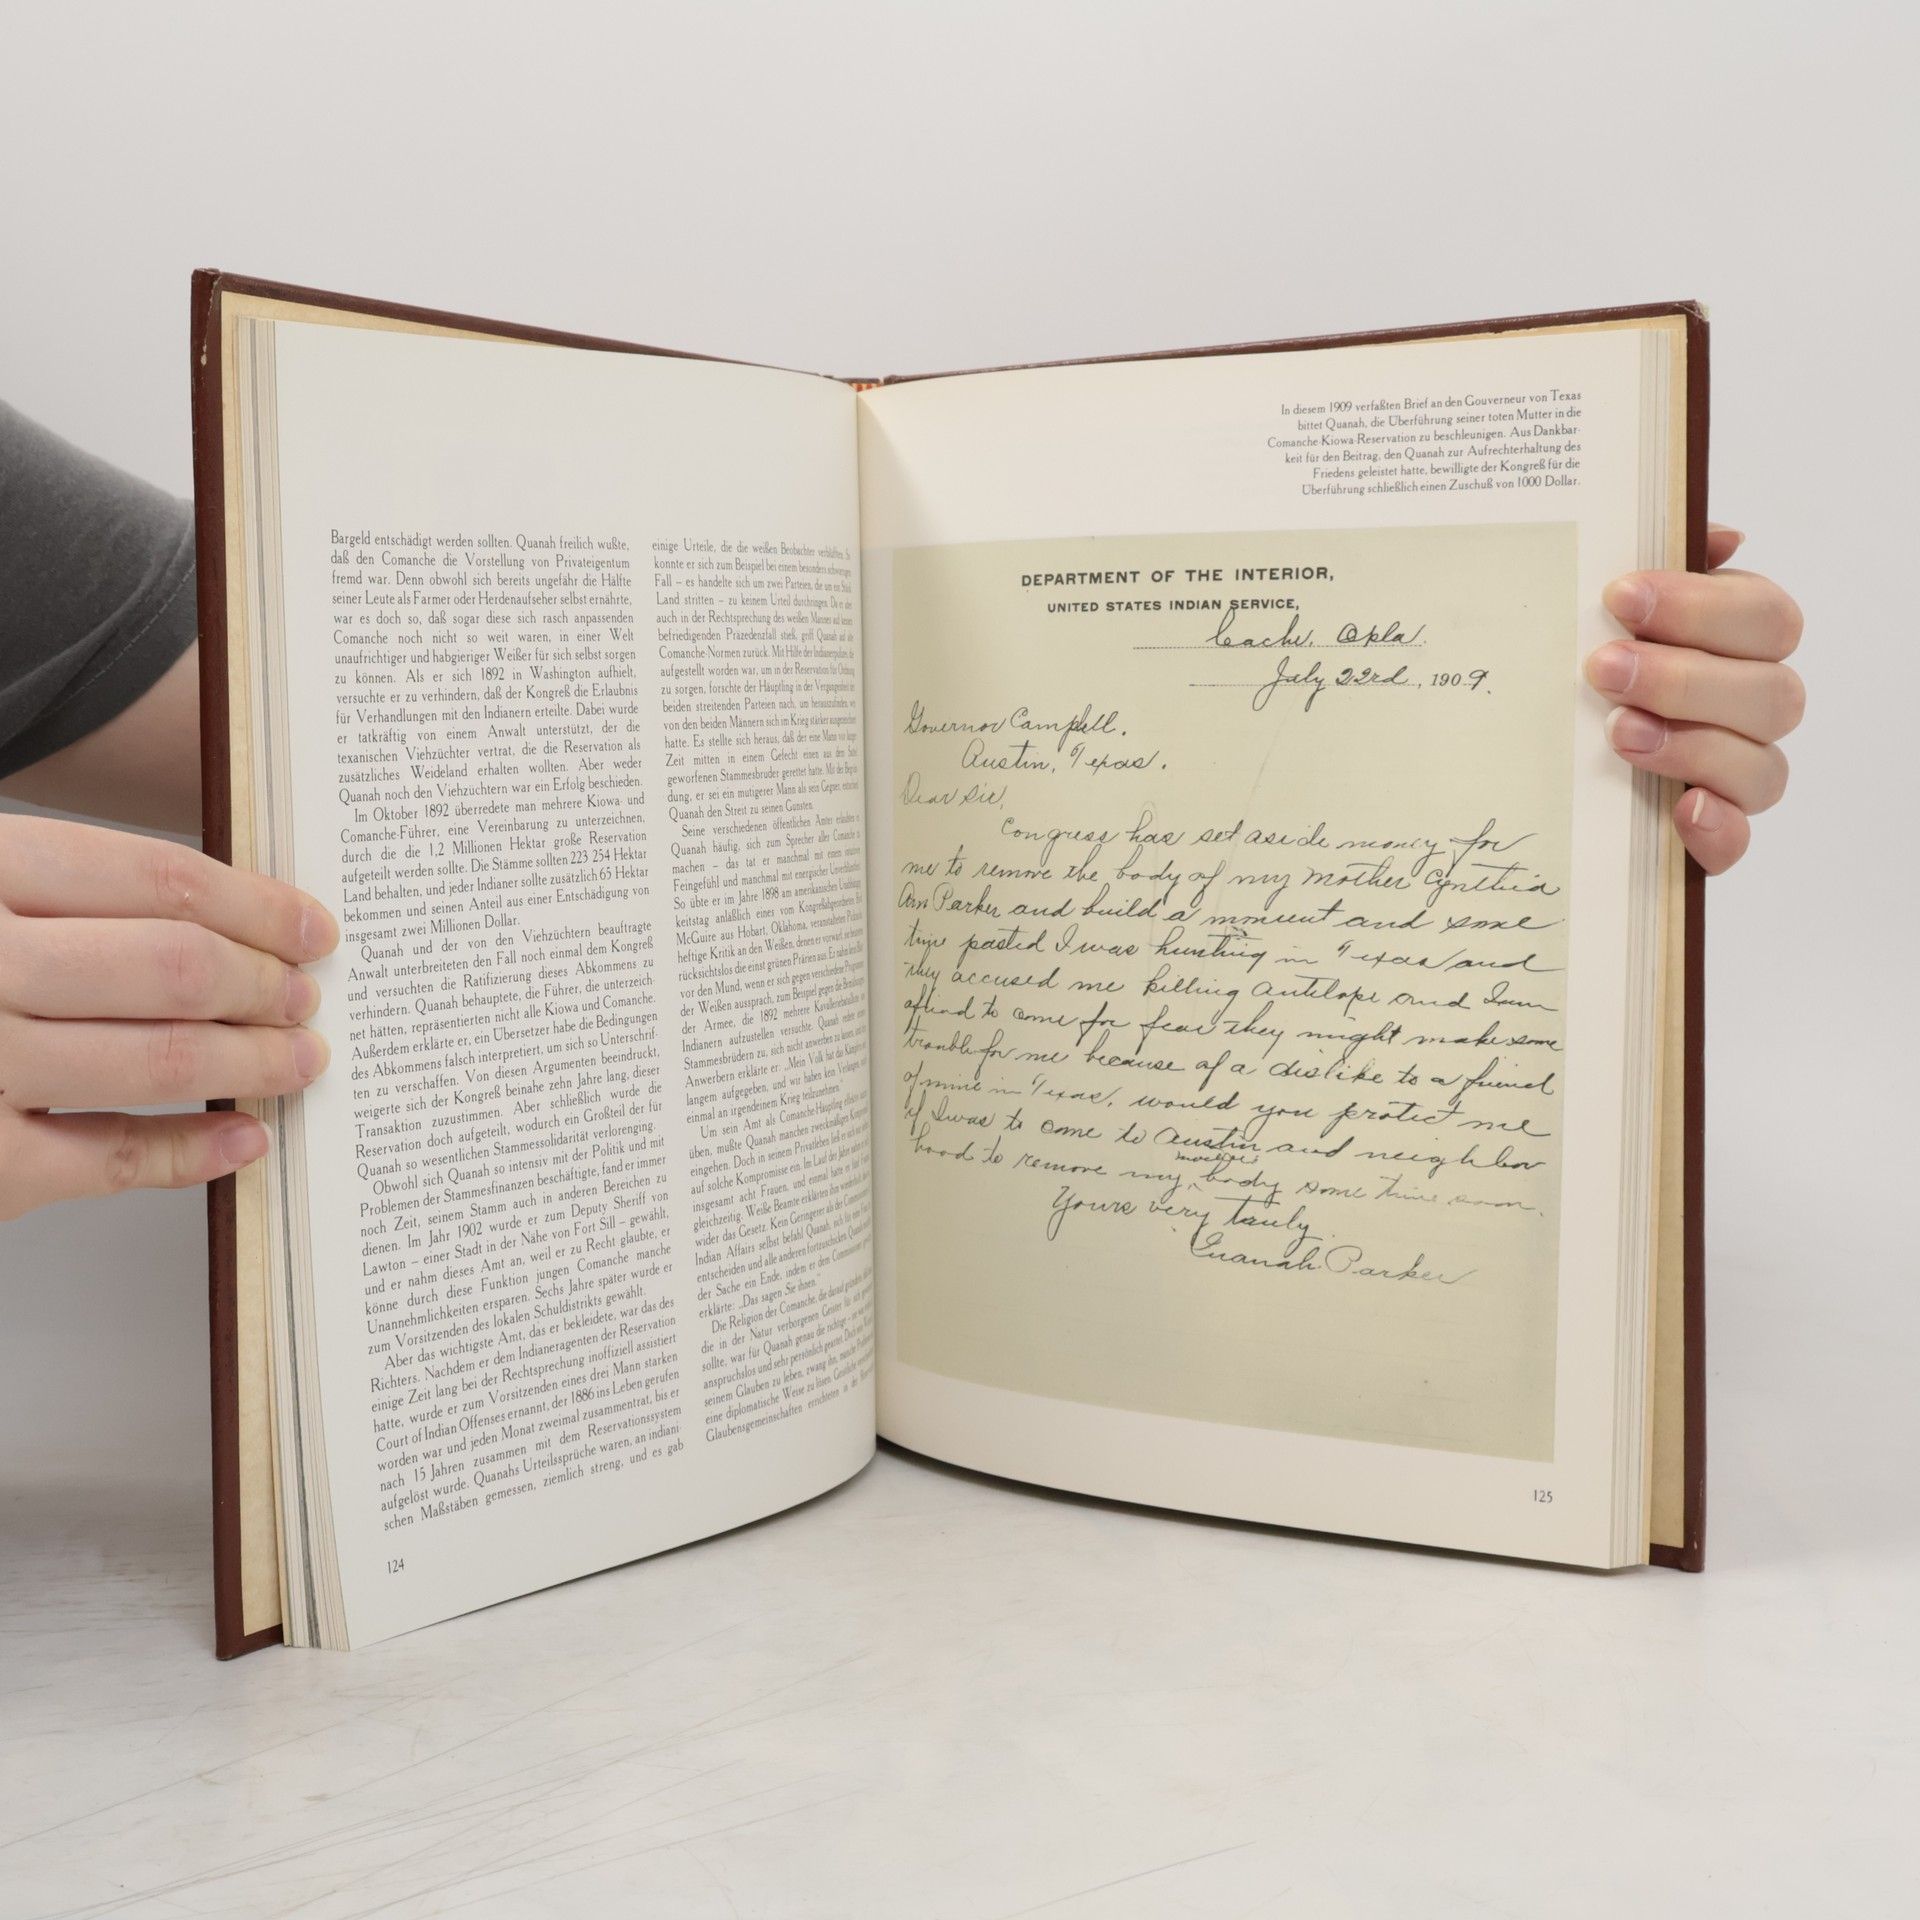 Bargeld entschädigt werden sollten. Quanah freilich wußte,
daß den Comanche die Vorstellung von Privateigentum
fremd war. Denn obwohl sich bereits ungefähr die Hälfte
seiner Leute als Farmer oder Herdenaufseher selbst ernährte,
war es doch so, daß sogar diese sich rasch anpassenden
Comanche noch nicht so weit waren, in einer Welt
unaufrichtiger und habgieriger Weißer für sich selbst sorgen
zu können. Als er sich 1892 in Washington aufhielt,
versuchte er zu verhindern, daß der Kongreß die Erlaubnis
für Verhandlungen mit den Indianern erteilte. Dabei wurde
er tatkräftig von einem Anwalt unterstützt, der die
texanischen Viehzüchter vertrat, die die Reservation als
zusätzliches Weideland erhalten wollten. Aber weder
Quanah noch den Viehzüchtern war ein Erfolg beschieden.
Im Oktober 1892 überredete man mehrere Kiowa- und
Comanche-Führer, eine Vereinbarung zu unterzeichnen,
durch die die 1,2 Millionen Hektar große Reservation
aufgeteilt werden sollte. Die Stämme sollten 223 254 Hektar
Land behalten, und jeder Indianer sollte zusätzlich 65 Hektar
bekommen und seinen Anteil aus einer Entschädigung von
insgesamt zwei Millionen Dollar.
Quanah und der von den Viehzüchtern beauftragte
Anwalt unterbreiteten den Fall noch einmal dem Kongreß
und versuchten die Ratifizierung dieses Abkommens zu
verhindern. Quanah behauptete, die Führer, die unterzeich-
net hätten, repräsentierten nicht alle Kiowa und Comanche.
Außerdem erklärte er, ein Übersetzer habe die Bedingungen
des Abkommens falsch interpretiert, um sich so Unterschrif-
ten zu verschaffen. Von diesen Argumenten beeindruckt,
weigerte sich der Kongreß beinahe zehn Jahre lang, dieser
Transaktion zuzustimmen. Aber schließlich wurde die
Reservation doch aufgeteilt, wodurch ein Großteil der für
Quanah so wesentlichen Stammessolidarität verlorenging.
Obwohl sich Quanah so intensiv mit der Politik und mit
Problemen der Stammesfinanzen beschäftigte, fand er immer
noch Zeit, seinem Stamm auch in anderen Bereichen zu
dienen. Im Jahr 1902 wurde er zum Deputy Sheriff von
Lawton – einer Stadt in der Nähe von Fort Sill – gewählt,
und er nahm dieses Amt an, weil er zu Recht glaubte, er
könne durch diese Funktion jungen Comanche manche
Unannehmlichkeiten ersparen. Sechs Jahre später wurde er
zum Vorsitzenden des lokalen Schuldistrikts gewählt.
Aber das wichtigste Amt, das er bekleidete, war das des
Richters. Nachdem er dem Indianeragenten der Reservation
einige Zeit lang bei der Rechtsprechung inoffiziell assistiert
hatte, wurde er zum Vorsitzenden eines drei Mann starken
Court of Indian Offenses ernannt, der 1886 ins Leben gerufen
worden war und jeden Monat zweimal zusammentrat, bis er
nach 15 Jahren zusammen mit dem Reservationssystem
aufgelöst wurde. Quanahs Urteilssprüche waren, an indiani-
schen Maßstäben gemessen, ziemlich streng, und es gab
124
einige Urteile, die die weißen Beobachter verblüfften. So
konnte er sich zum Beispiel bei einem besonders schwierigen
Fall – es handelte sich um zwei Parteien, die um ein Stück
Land stritten – zu keinem Urteil durchringen. Da er aber
auch in der Rechtsprechung des weißen Mannes auf keinen
befriedigenden Präzedenzfall stieß, griff Quanah auf alte
Comanche-Normen zurück. Mit Hilfe der Indianerpolizei, die
aufgestellt worden war, um in der Reservation für Ordnung
zu sorgen, forschte der Häuptling in der Vergangenheit der
beiden streitenden Parteien nach, um herauszufinden, wer
von den beiden Männern sich im Krieg stärker ausgezeichnet
hatte. Es stellte sich heraus, daß der eine Mann vor langer
Zeit mitten in einem Gefecht einen aus dem Sattel
geworfenen Stammesbruder gerettet hatte. Mit der Begrün-
dung, er sei ein mutigerer Mann als sein Gegner, entschied
Quanah den Streit zu seinen Gunsten.
Seine verschiedenen öffentlichen Ämter erlaubten es
Quanah häufig, sich zum Sprecher aller Comanche zu
machen – das tat er manchmal mit einem intuitiven
Feingefühl und manchmal mit energischer Unverblümtheit.
So übte er im Jahre 1898 am amerikanischen Unabhängig-
keitstag anläßlich eines vom Kongreßabgeordneten Bird
McGuire aus Hobart, Oklahoma, veranstalteten Picknicks
heftige Kritik an den Weißen, denen er vorwarf, sie besiedelten
rücksichtslos die einst grünen Prärien aus. Er nahm kein Blatt
vor den Mund, wenn er sich gegen verschiedene Programme
der Weißen aussprach, zum Beispiel gegen die Bemühungen
der Armee, die 1892 mehrere Kavalleriebataillone aus
Indianern aufzustellen versuchte. Quanah redete seinen
Stammesbrüdern zu, sich nicht anwerben zu lassen, und den
Anwerbern erklärte er: „Mein Volk hat das Kämpfen seit
langem aufgegeben, und wir haben kein Verlangen, noch
einmal an irgendeinem Krieg teilzunehmen.“
Um sein Amt als Comanche-Häuptling effektiv
üben, mußte Quanah manchen zweckmäßigen Kompromiß
eingehen. Doch in seinem Privatleben ließ er sich nicht
auf solche Kompromisse ein. Im Lauf der Jahre
insgesamt acht Frauen, und einmal hatte er fünf Frauen
gleichzeitig. Weiße Beamte erklärten ihm wiederholt,
wider das Gesetz. Kein Geringerer als der Commissioner
Indian Affairs selbst befahl Quanah, sich für eine Frau
entscheiden und alle anderen fortzuschicken. Quanah
der Sache ein Ende, indem er dem Commissioner
erklärte: „Das sagen Sie ihnen.“
Die Religion der Comanche, die darauf gründete,
die in der Natur verborgenen Geister
sollte, war für Quanah genau die richtige –
anspruchslos und sehr persönlich geartet. Doch
seinem Glauben zu leben, zwang ihn, manche Probleme
eine diplomatische Weise zu lösen.
Glaubensgemeinschaften errichteten in der
In diesem 1909 verfaßten Brief an den Gouverneur von Texas
bittet Quanah, die Überführung seiner toten Mutter in die
Comanche-Kiowa-Reservation zu beschleunigen. Aus Dankbar-
keit für den Beitrag, den Quanah zur Aufrechterhaltung des
Friedens geleistet hatte, bewilligte der Kongreß für die
Überführung schließlich einen Zuschuß von 1000 Dollar.
DEPARTMENT OF THE INTERIOR,
UNITED STATES INDIAN SERVICE,
Cache, Okla.
July 22rd, 1909.
Governor Campbell.
Austin, Texas.
Dear Sir,
Congress has set aside money for
me to remove the body of my mother Cynthia
Ann Parker and build a monument and some
time pasted I was hunting in Texas and
they accused me killing antelope and I am
afriad to come for fear they might make some
trouble for me because of a dislike to a friend
of mine in Texas, would you protect me
if I was to come to Austin and neighbor
hood to remove my mother's body some time soon.
Yours very truly
Quanah Parker
125